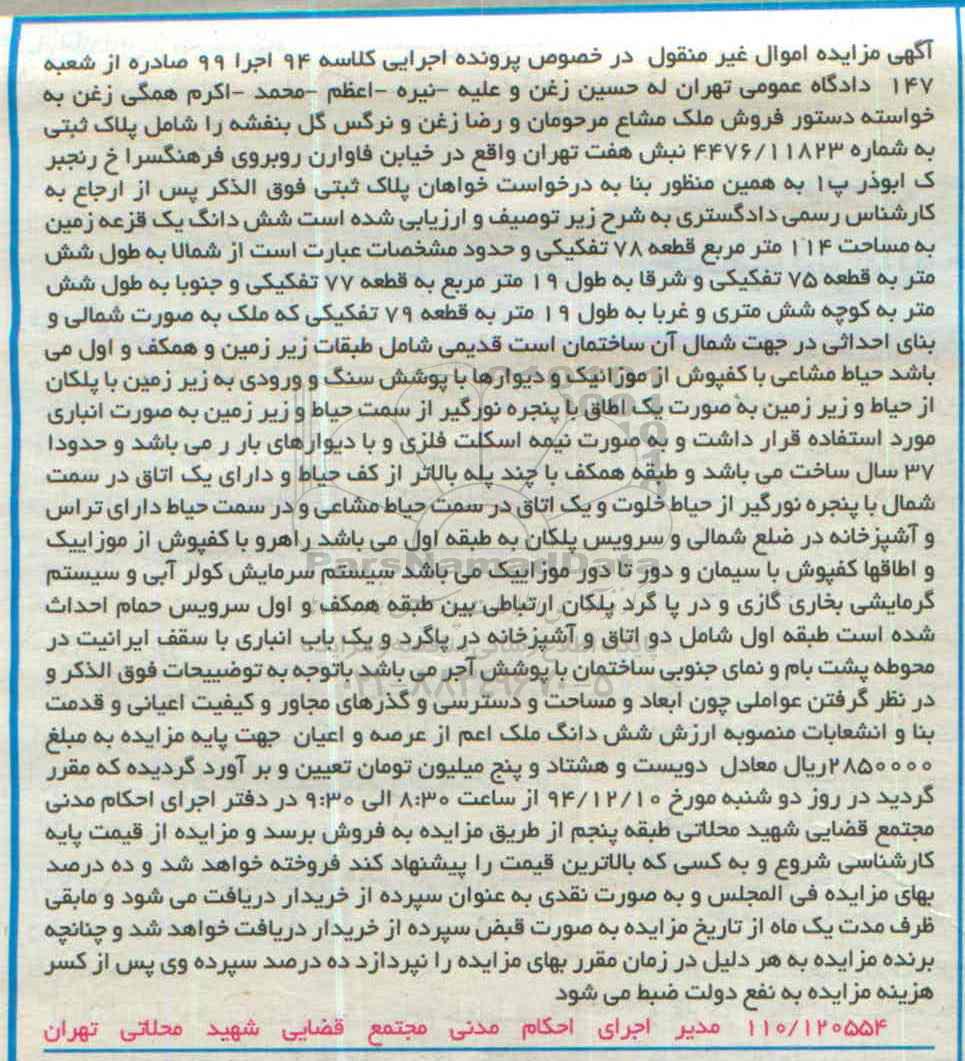 آگهی مزایده اموال غیر منقول در خصوص پرونده اجرایی کلاسه ۹۴ اجرا ۹۹ صادره از شعبه
۱۴۷ دادگاه عمومی تهران له حسین زغن و علیه -نیره -اعظم -محمد -اکرم همگی زغن به
خواسته دستور فروش ملک مشاع مرحومان و رضا زغن و نرگس گل بنفشه را شامل پلاک ثبتی
به شماره ۴۴۷۶/۱۱۸۲۳ نبش هفت تهران واقع در خیابن فاوارن روبروی فرهنگسرا خ رنجبر
ک ابوذر پ۱ به همین منظور بنا به درخواست خواهان پلاک ثبتی فوق الذکر پس از ارجاع به
کارشناس رسمی دادگستری به شرح زیر توصیف و ارزیابی شده است شش دانگ یک قزعه زمین
به مساحت ۱۱۴ متر مربع قطعه ۷۸ تفکیکی و حدود مشخصات عبارت است از شمالا به طول شش
متر به قطعه ۷۵ تفکیکی و شرقا به طول ۱۹ متر مربع به قطعه ۷۷ تفکیکی و جنوبا به طول شش
متر به کوچه شش متری و غربا به طول ۱۹ متر به قطعه ۷۹ تفکیکی که ملک به صورت شمالی و
بنای احداثی در جهت شمال آن ساختمان است قدیمی شامل طبقات زیر زمین و همکف و اول می
باشد حیاط مشاعی با کفپوش از موزانیک و دیوارها با پوشش سنگ و ورودی به زیر زمین با پلکان
از حیاط و زیر زمین به صورت یک اطاق با پنجره نورگیر از سمت حیاط و زیر زمین به صورت انباری
مورد استفاده قرار داشت و به صورت نیمه اسکلت فلزی و با دیوارهای بار ر می باشد و حدودا
۳۷ سال ساخت می باشد و طبقه همکف با چند پله بالاتر از کف حیاط و دارای یک اتاق در سمت
شمال با پنجره نورگیر از حیاط خلوت و یک اتاق در سمت حیاط مشاعی و در سمت حیاط دارای تراس
و آشپزخانه در ضلع شمالی و سرویس پلکان به طبقه اول می باشد راهرو با کفپوش از موزاییک
ParsNamadData
و اطاقها کفپوش با سیمان و دور تا دور موزاییک می باشد سیستم سرمایش کولر آبی و سیستم
گرمایشی بخاری گازی و در پا گرد پلکان ارتباطی بین طبقه همکف و اول سرویس حمام احداث
شده است طبقه اول شامل دو اتاق و آشپزخانه در پاگرد و یک باب انباری با سقف ایرانیت در
محوطه پشت بام و نمای جنوبی ساختمان با پوشش آجر می باشد باتوجه به توضییحات فوق الذکر و
در نظر گرفتن عواملی چون ابعاد و مساحت و دسترسی و گذرهای مجاور و کیفیت اعیانی و قدمت
بنا و انشعابات منصوبه ارزش شش دانگ ملک اعم از عرصه و اعیان جهت پایه مزایده به مبلغ
۲۸۵۰۰۰۰ریال معادل دویست و هشتاد و پنج میلیون تومان تعیین و بر آورد گردیده که مقرر
گردید در روز دو شنبه مورخ ۹۴/۱۲/۱۰ از ساعت ۸:۳۰ الی ۹:۳۰ در دفتر اجرای احکام مدنی
مجتمع قضایی شهید محلاتی طبقه پنجم از طریق مزایده به فروش برسد و مزایده از قیمت پایه
کارشناسی شروع و به کسی که بالاترین قیمت را پیشنهاد کند فروخته خواهد شد و ده درصد
بهای مزایده فی المجلس و به صورت نقدی به عنوان سپرده از خریدار دریافت می شود و مابقی
ظرف مدت یک ماه از تاریخ مزایده به صورت قبض سپرده از خریدار دریافت خواهد شد و چنانچه
برنده مزایده به هر دلیل در زمان مقرر بهای مزایده را نپردازد ده درصد سپرده وی پس از کسر
هزینه مزایده به نفع دولت ضبط می شود
۱۱۰/۱۲۰۵۵۴ مدیر اجرای احکام مدنی مجتمع قضایی شهید محلاتی تهران